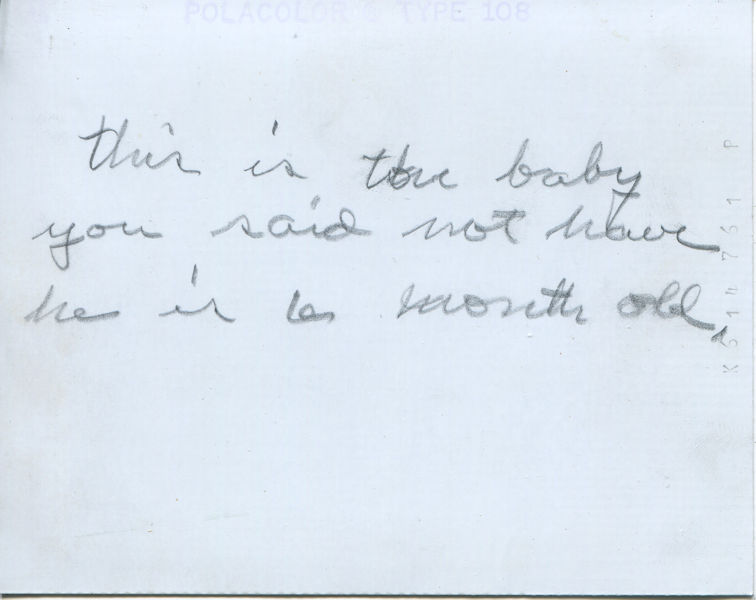 POLACOLOR 2 TYPE 108
this is the baby
you said not have
he is 6 month old,
K514761 P